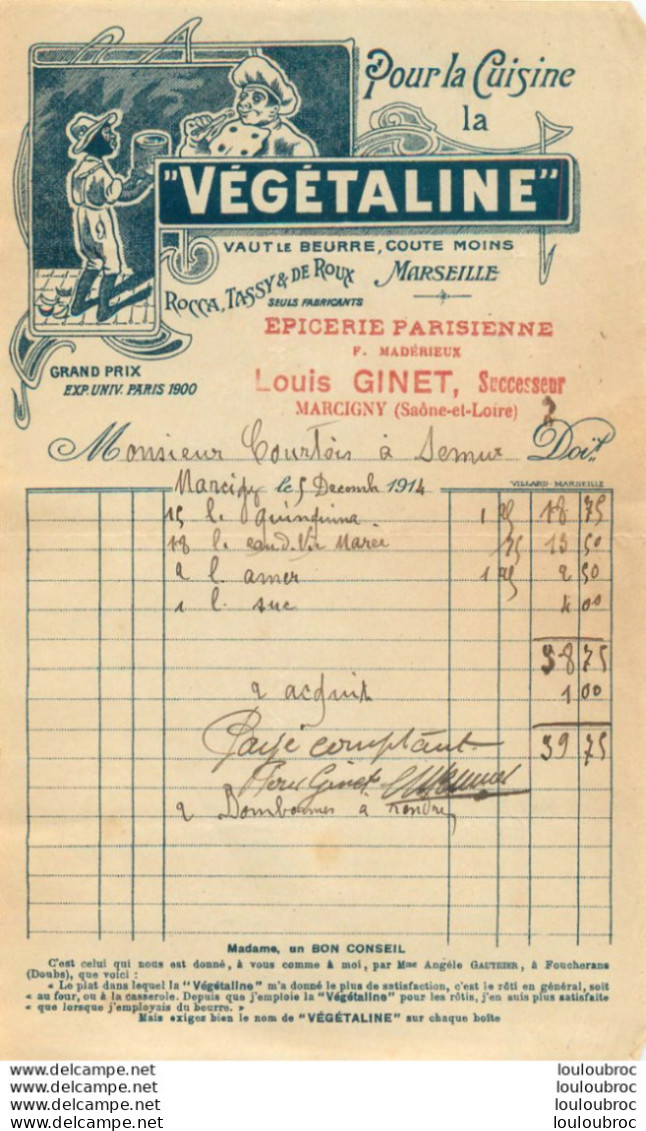 Pour la Cuisine
la
"VÉGÉTALINE"
VAUT LE BEURRE, COUTE MOINS
ROCCA, TASSY & DE ROUX MARSEILLE
SEULS FABRICANTS
EPICERIE PARISIENNE
F. MADÉRIEUX
Louis GINET, Successeur
MARCIGNY (Saône-et-Loire)
GRAND PRIX
EXP. UNIV. PARIS 1900
Monsieur Courtois à Semur Doit
VILLARD-MARSEILLE
Marcigny le 5 Decemb 1914
15 l. quinquina 1 25 18 75
18 l. eau d. Vie Marc 75 13 50
2 l. amer 1 25 2 50
1 l. suc 4 00
38 75
2 acquit 1 00
Payé comptant 39 75
Louis Ginet
2 Bombonnes a rendre
Madame, un BON CONSEIL
C'est celui qui nous est donné, à vous comme à moi, par Mme Angéle GAUTHIER, à Foucherans
(Doubs), que voici :
« Le plat dans lequel la "Végétaline" m'a donné le plus de satisfaction, c'est le rôti en général, soit
« au four, ou à la casserole. Depuis que j'emploie la "Végétaline" pour les rôtis, j'en suis plus satisfaite
« que lorsque j'employais du beurre. »
Mais exigez bien le nom de "VÉGÉTALINE" sur chaque boîte
https://www.delcampe.net louloubroc
https://www.delcampe.net louloubroc
https://www.delcampe.net louloubroc
https://www.delcampe.net louloubroc